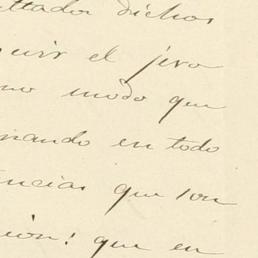 ttados dichos
uir el jiro
mo modo que
nando en todo
tencias que son
sion: que en